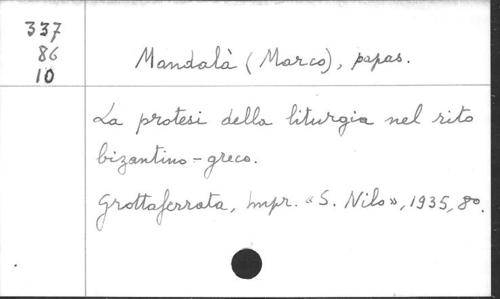 337
86
10
Mandalà (Marco), papas.
La protesi della liturgia nel rito
bizantino-greco.
Grottaferrata, Impr. «S. Nilo», 1935, 8º.